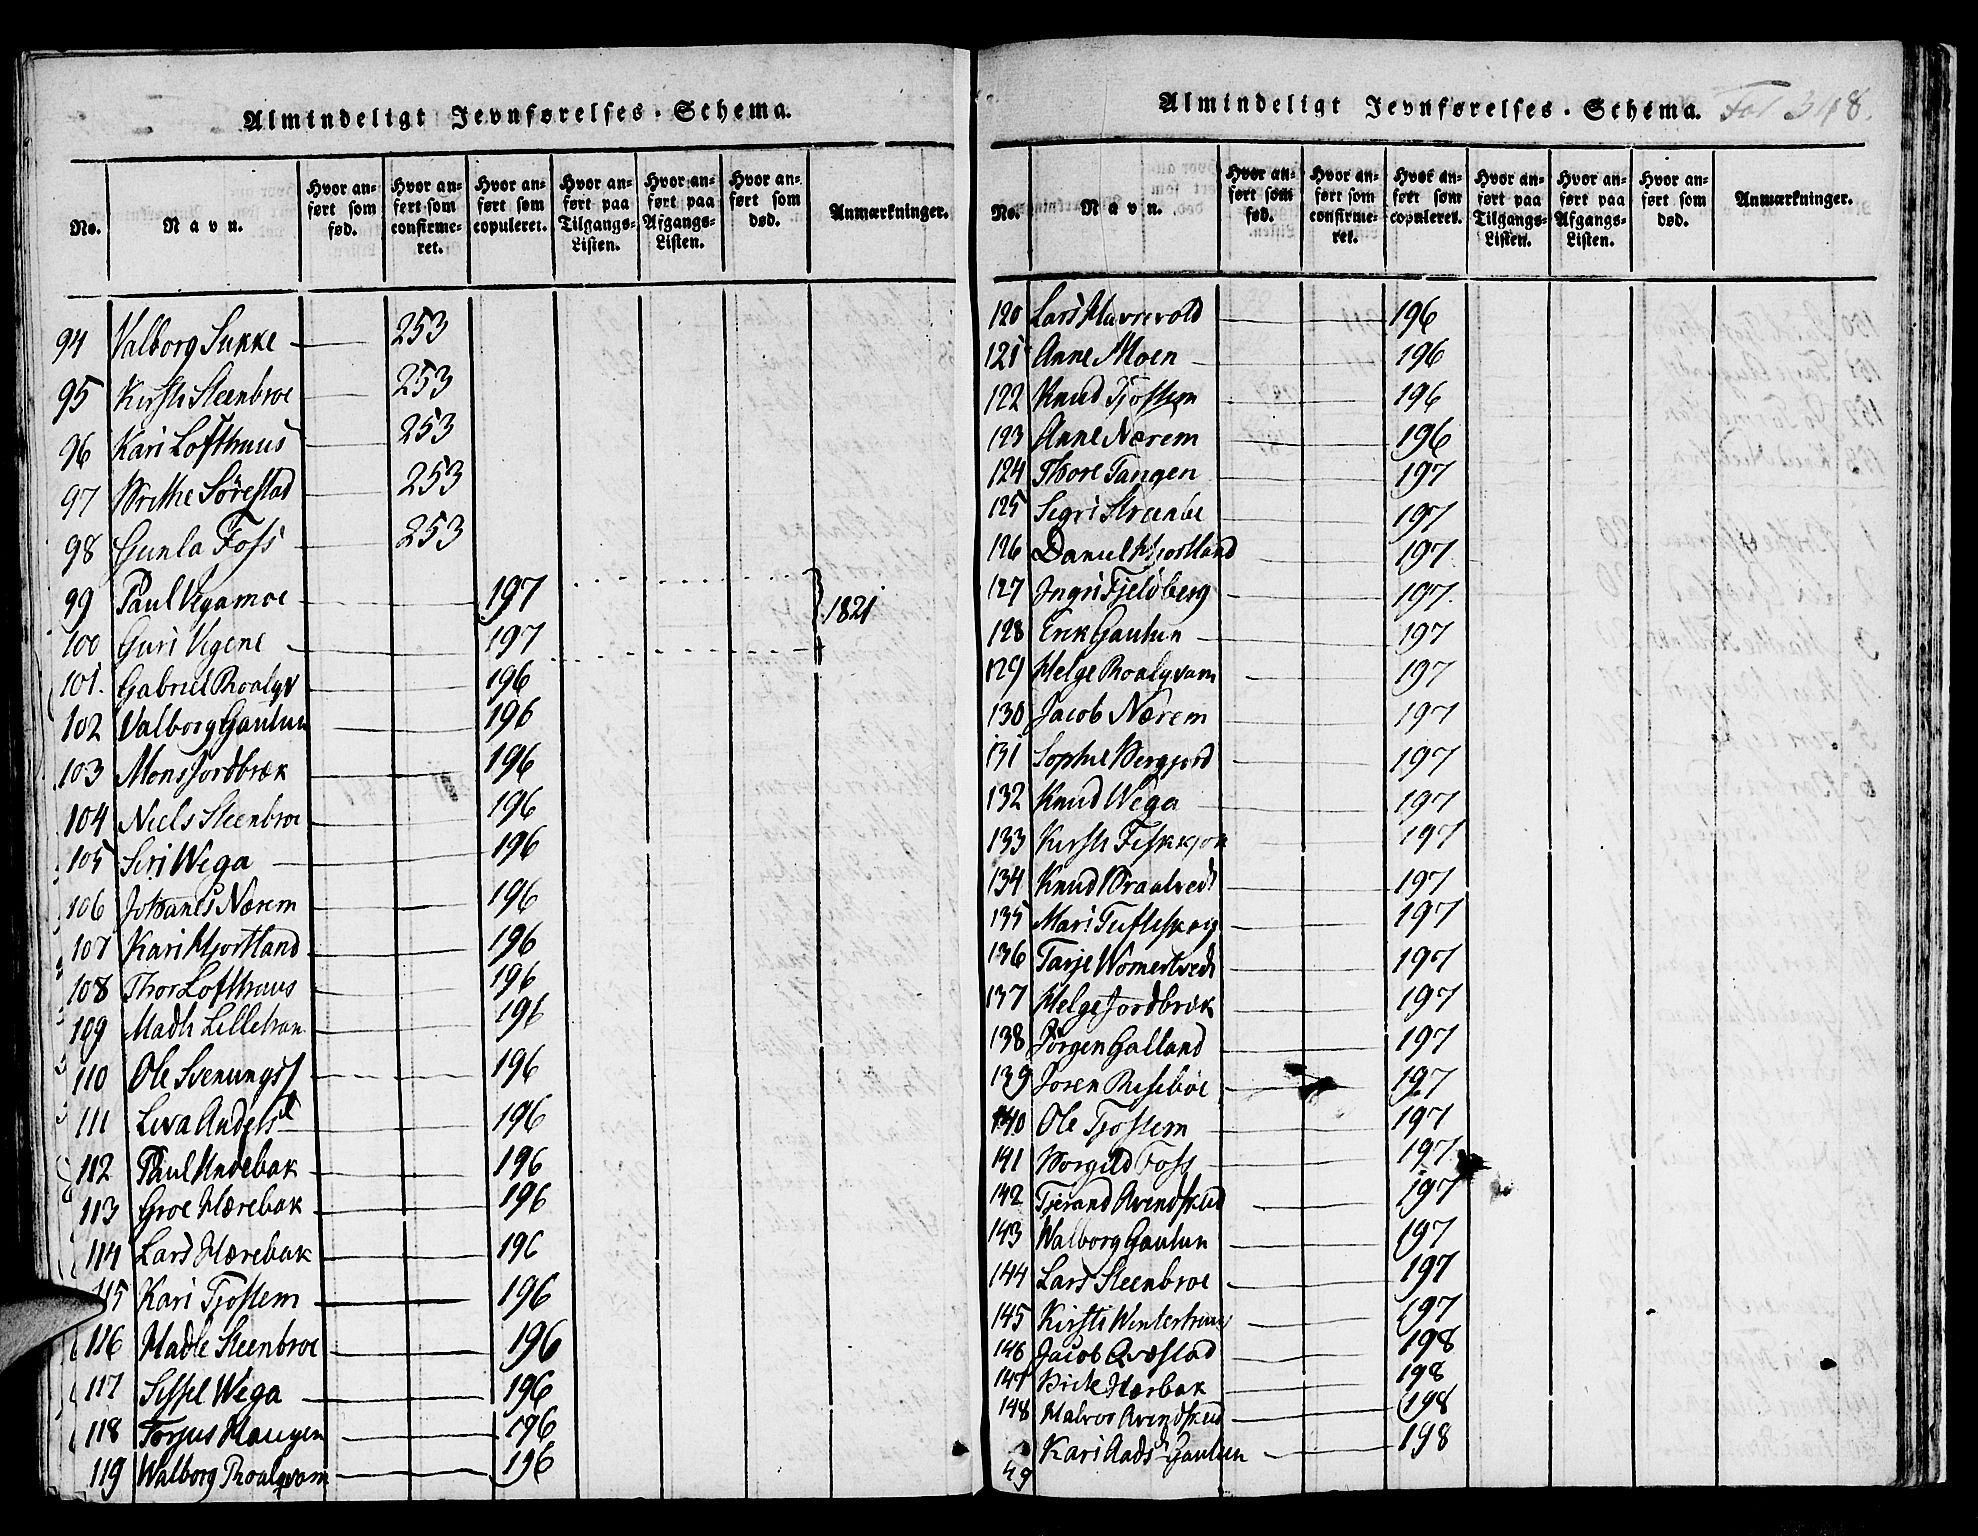 Almindeligt Jevnførelses-Schema.
No. Navn. Hvor anført som fød. Hvor anført som confirmeret. Hvor anført som copuleret. Hvor anført paa Tilgangs-Listen. Hvor anført paa Afgangs-Listen. Hvor anført som død. Anmærkninger.
94 Valborg Sukke 253
95 Kirsti Steenbroe 253
96 Kari Lofthuus 253
97 Brithe Sørestad 253
98 Gunla Foss 253
99 Paul Vegamoe 197 1821
100 Guri Vegene 197
101. Gabriel Roalqv 196
102 Valborg Gautun 196
103 Mons Jordbræk 196
104 Niels Steenbroe 196
105 Siri Wega 196
106 Johanes Nærem 196
107 Kari Hjortland 196
108 Thor Lofthuus 196
109 Madli Lilletran 196
110 Ole Svenungss 196
111 Liva Andelsd 196
112 Paul Undebak 196
113 Groe Hærebak 196
114 Lars Hærebak 196
115 Kari Tjostem 196
116 Madle Steenbroe 196
117 Sissel Wega 196
118 Torjus Haugen 196
119 Walborg Roalqvam 196
Almindeligt Jevnførelses-Schema. Fol 348.
No. Navn. Hvor anført som fød. Hvor anført som confirmeret. Hvor anført som copuleret. Hvor anført paa Tilgangs-Listen. Hvor anført paa Afgangs-Listen. Hvor anført som død. Anmærkninger.
120 Lars Havrevold 196
121 Anne Moen 196
122 Knud Tjostem 196
123 Anne Nærem 196
124 Thore Tangen 197
125 Segri Streenbe 197
126 Daniel Hjortland 197
127 Ingri Fjeldberg 197.
128 Erik Gautun 197
129 Helge Roalqvam 197
130 Jacob Nærem 197
131 Sophie Bergjord 197
132 Knud Wega 197
133 Kirsti Fiskekjon 197
134 Knud Braatvedt 197
135 Mari Tufteskog 197
136 Tarje Womertvedt 197
137 Helge Jordbræk 197
138 Jørgen Galland 197
139 Joren Risebøe 197
140 Ole Tjostem 197
141 Borgild Foss 197
142 Tjerand Arendskud 197
143 Walborg Gautun 197
144 Lars Steenbroe 197
145 Kirsti Winterhuus 197
146 Jacob Qvæstad 198
147 Birte Hærbak 198
148 Halvor Arendskud 198
49 Kari Aadsd Gautun 198